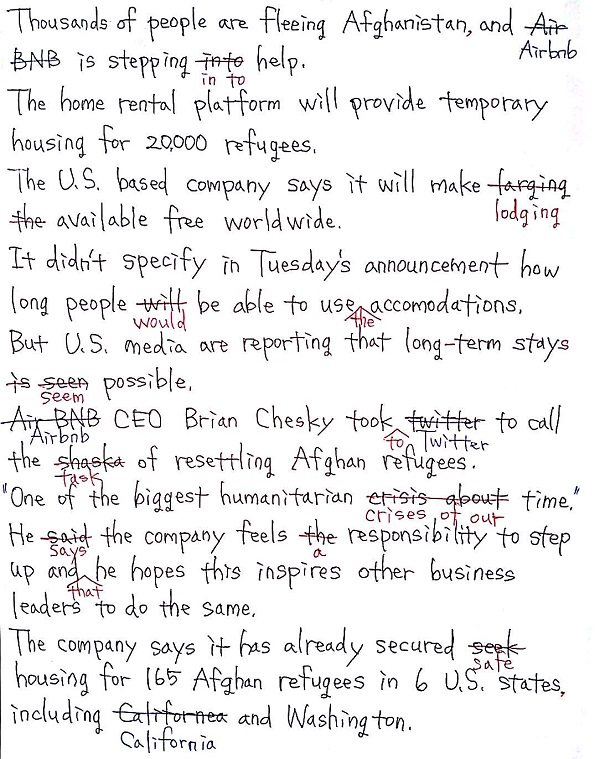 Thousands of people are fleeing Afghanistan, and Air
Airbnb
BNB is stepping into help.
in to
The home rental platform will provide temporary
housing for 20,000 refugees.
The U.S. based company says it will make farging
lodging
the available free worldwide.
It didn't specify in Tuesday's announcement how
long people will be able to use accomodations.
would the
But U.S. media are reporting that long-term stays
is seen possible.
seem
Air BNB CEO Brian Chesky took twitter to call
Airbnb to Twitter
the shaska of resettling Afghan refugees.
task
"One of the biggest humanitarian crisis about time."
crises of our
He said the company feels the responsibility to step
says a
up and he hopes this inspires other business
that
leaders to do the same.
The company says it has already secured seek
safe
housing for 165 Afghan refugees in 6 U.S. states,
including Californea and Washington.
California